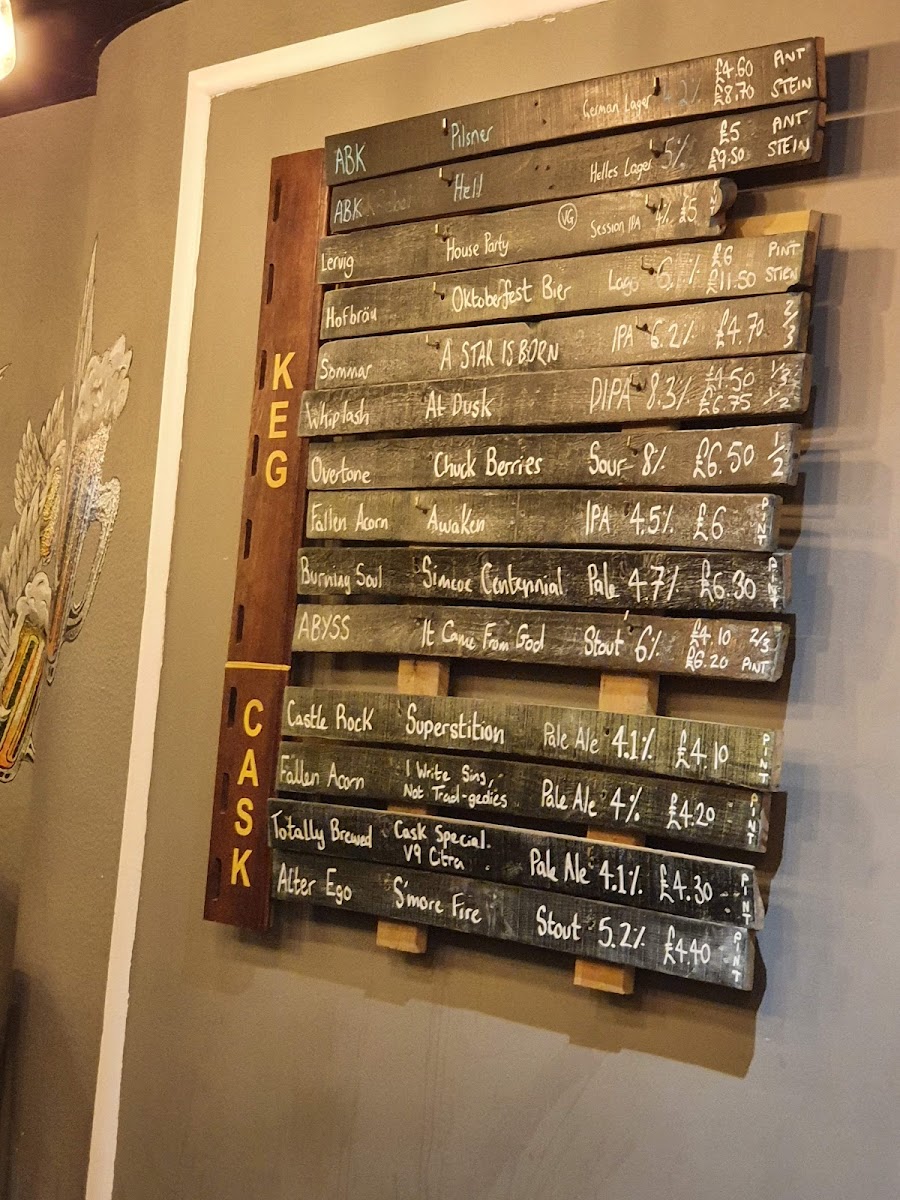 KEG
ABK Pilsner German Lager 2% £4.60 PINT
£8.70 STEIN
ABK Hell Helles Lager 5% £5 PINT
£9.50 STEIN
Lervig House Party VG Session IPA 4% £5 PINT
Hofbräu Oktoberfest Bier Lager 6. % £6 PINT
£11.50 STEIN
Sommar A STAR IS BORN IPA 6.2% £4.70 2/3
Whiplash At Dusk DIPA 8.3% £4.50 1/3
£6.75 1/2
Overtone Chuck Berries Sour 8% £6.50 1/2
Fallen Acorn Awaken IPA 4.5% £6 PINT
Burning Soul Simcoe Centennial Pale 4.7% £6.30 PINT
ABYSS It Came From God Stout 6% £4.10 2/3
£6.20 PINT
CASK
Castle Rock Superstition Pale Ale 4.1% £4.10 PINT
Fallen Acorn I Write Sins,
Not Trad-gedies Pale Ale 4% £4.20 PINT
Totally Brewed Cask Special.
V9 Citra Pale Ale 4.1% £4.30 PINT
Alter Ego S'more Fire Stout 5.2% £4.40 PINT